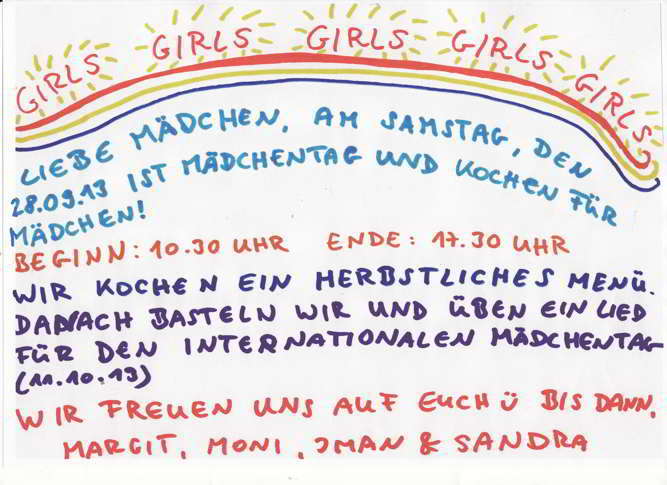 GIRLS GIRLS GIRLS GIRLS GIRLS
LIEBE MÄDCHEN, AM SAMSTAG, DEN
28.09.13 IST MÄDCHENTAG UND KOCHEN FÜR
MÄDCHEN!
BEGINN: 10.30 UHR ENDE: 17.30 UHR
WIR KOCHEN EIN HERBSTLICHES MENÜ.
DANACH BASTELN WIR UND ÜBEN EIN LIED
FÜR DEN INTERNATIONALEN MÄDCHENTAG
(11.10.13)
WIR FREUEN UNS AUF EUCH Ü BIS DANN,
MARGIT, MONI, IMAN & SANDRA